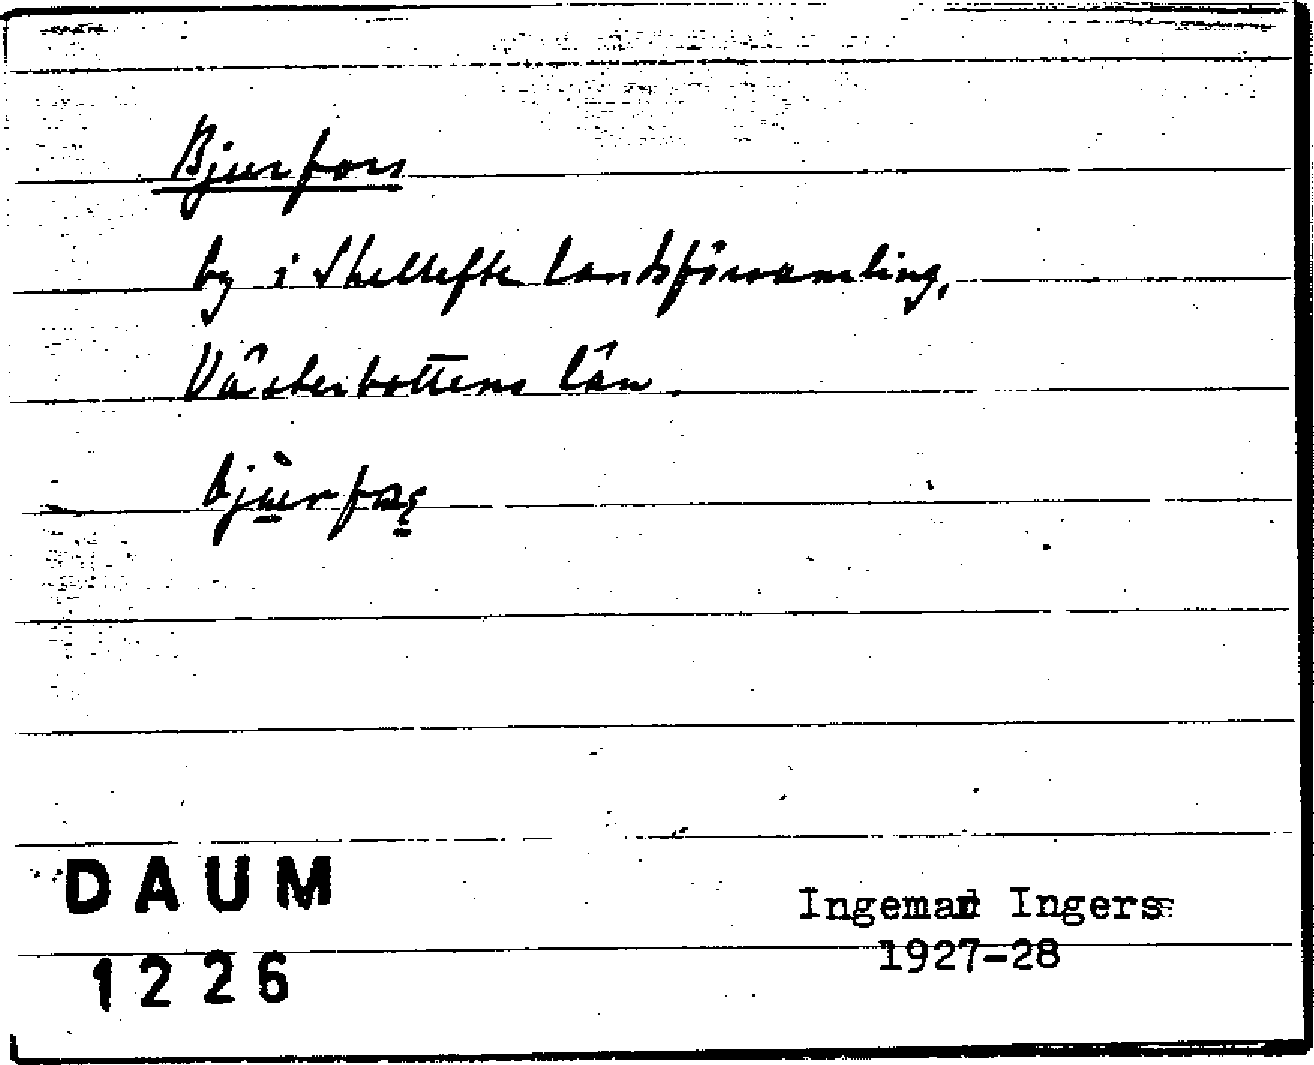 Bjurfors
by i Skellefte landsförsamling,
Västerbottens län
DAUM
1226
Ingemar Ingers
1927-28